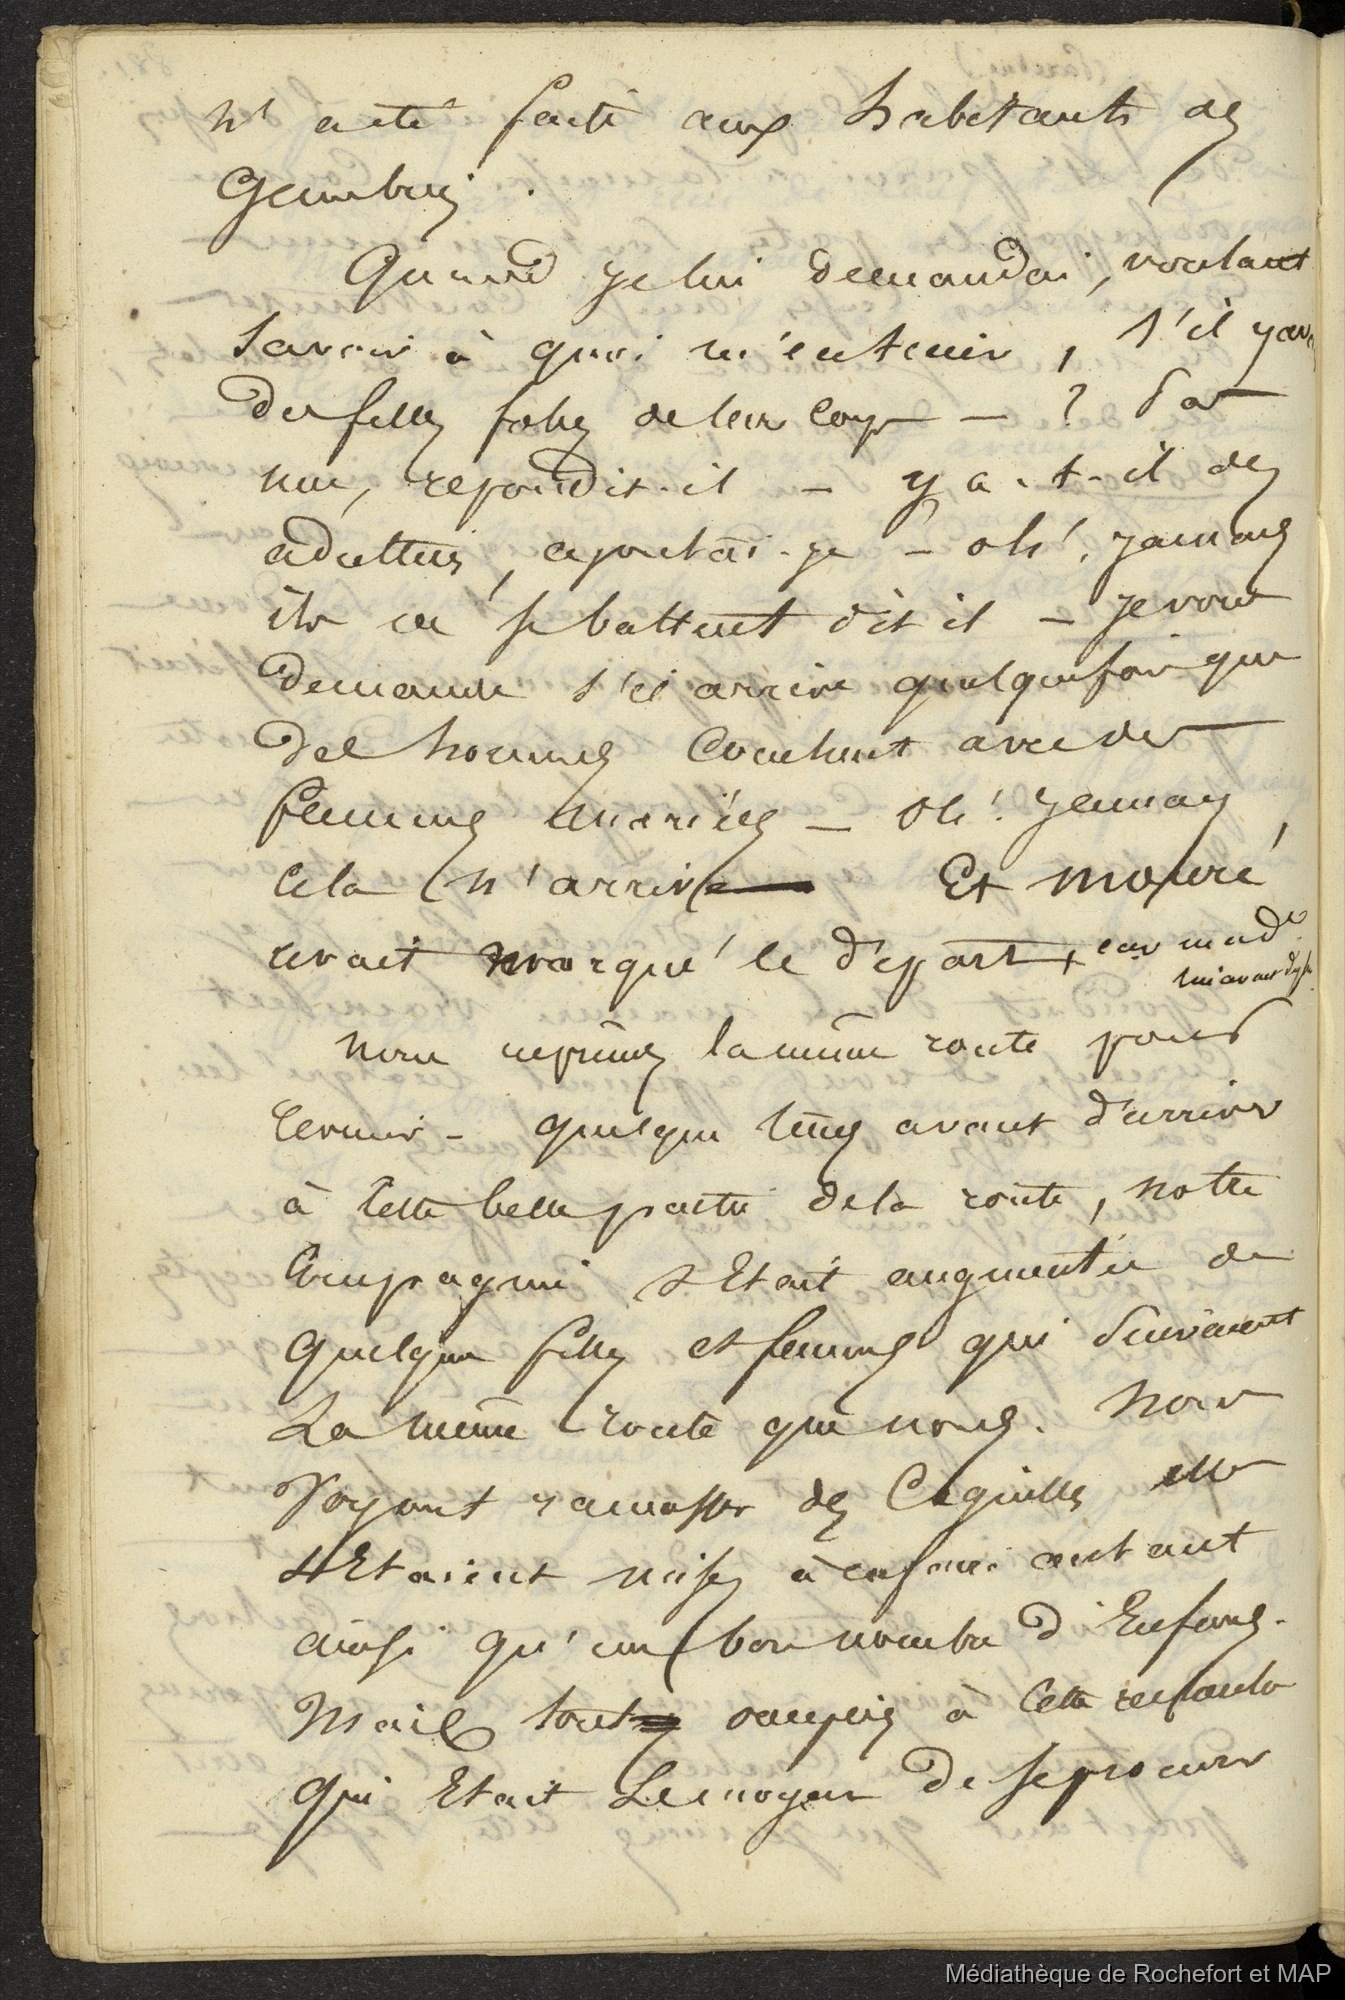 n'a été faite aux habitants des
Gambier.
Quand je lui demandai, voulant
savoir à quoi m'en tenir, s'il y av
des filles folles de leur corps — ? Sa
non, repondit-il — y a-t-il des
adulteres, ajoutai-je — oh! jamais
ils se battent dit il — je vous
demande s'il arrive quelquefois que
des hommes couchent avec des
femmes mariées — oh! jamais,
cela n'arrive Et
avait marqué le départ, car made
lui avait
nous reprimes la même route pour
revenir — quelque tems avant d'arriver
à cette belle partie de la route, notre
compagnie s'Etait augmentée de
quelques filles et femmes qui suivaient
La même route que nous. Nous
Voyant ramasser des Coquilles elles
s'Etaient mises à en faire autant
ainsi qu'un bon nombre d'Enfans.
Mais tout occupés à cette recherche
qui Etait Le moyen de se procurer
Médiathèque de Rochefort et MAP